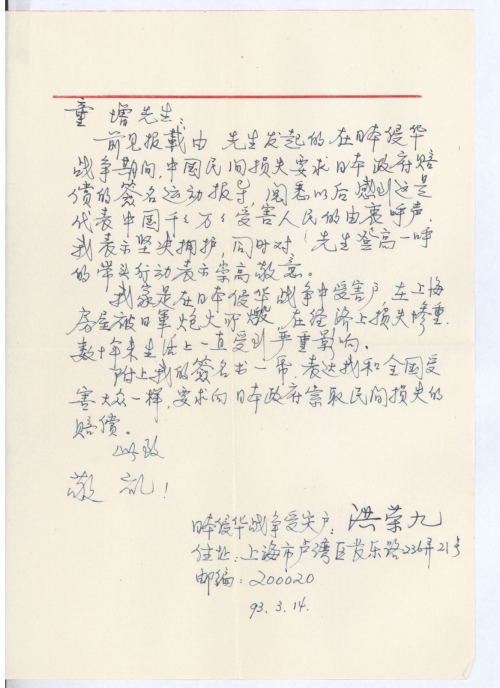 童增先生:
前见报载由 先生发起的在日本侵华
战争期间,中国民间损失要求日本政府赔
偿的签名运动报导,阅悉以后感到这是
代表中国千千万万受害人民的由衷呼声,
我表示坚决拥护,同时对 先生登高一呼
的带头行动表示崇高敬意。
我家是在日本侵华战争中受害户,在上海
房屋被日军炮火所燬,在经济上损失惨重,
数十年来生活上一直受到严重影响。
附上我的签名书一帋,表达我和全国受
害大众一样,要求向日本政府索取民间损失的
赔偿。
此致
敬礼!
日本侵华战争受灾户:洪荣九
住址:上海市卢湾区 乐路236弄21号
邮编:200020
93.3.14.